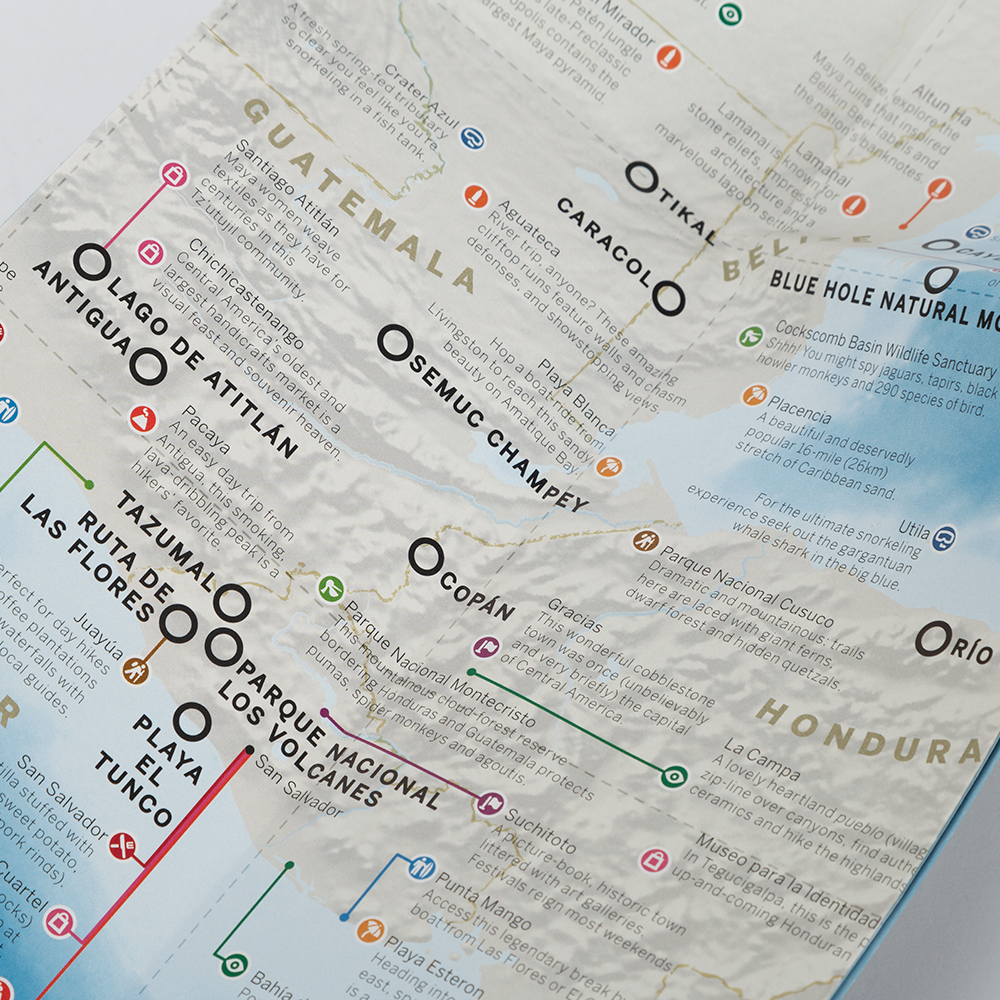 Mirador
Petén jungle
late-Preclassic
contains the
largest Maya pyramid.
Crater Azul
A fresh spring-fed tributary
so clear you feel like you're
snorkeling in a fish tank.
Altun Ha
In Belize, explore the
Maya ruins that inspired
Belikin Beer labels and
the nation's banknotes.
Lamanai
Lamanai is known for
stone reliefs, impressive
architecture and a
marvelous lagoon setting
GUATEMALA
BELIZE
TIKAL
CARACOL
BLUE HOLE NATURAL
Santiago Atitlán
Maya women weave
textiles as they have for
centuries in this
Tz'utujil community.
Chichicastenango
Central America's oldest and
largest handicrafts market is a
visual feast and souvenir heaven.
Aguateca
River trip, anyone? These amazing
clifftop ruins feature walls and chasm
defenses, and showstopping views.
LAGO DE ATITLÁN
ANTIGUA
SEMUC CHAMPEY
Playa Blanca
Hop a boat ride from
Livingston to reach this sandy
beauty on Amatique Bay.
Cockscomb Basin Wildlife Sanctuary
Shhh! You might spy jaguars, tapirs, black
howler monkeys and 290 species of bird.
Placencia
A beautiful and deservedly
popular 16-mile (26km)
stretch of Caribbean sand.
Utila
For the ultimate snorkeling
experience seek out the gargantuan
whale shark in the big blue.
Pacaya
An easy day trip from
Antigua, this smoking,
lava-dribbling peak is a
hikers' favorite.
TAZUMAL
RUTA DE
LAS FLORES
COPÁN
Parque Nacional Cusuco
Dramatic and mountainous: trails
here are laced with giant ferns,
dwarf forest and hidden quetzals.
RÍO
Gracias
This wonderful cobblestone
town was once (unbelievably
and very briefly) the capital
of Central America.
Parque Nacional Montecristo
This mountainous cloud-forest reserve
bordering Honduras and Guatemala protects
pumas, spider monkeys and agoutis.
HONDURA
Juayúa
erfect for day hikes
offee plantations
waterfalls with
local guides.
PARQUE NACIONAL
LOS VOLCANES
PLAYA
EL
TUNCO
San Salvador
San Salvador
tilla stuffed with
sweet potato,
pork rinds).
Cuartel
ocks)
n at
La Campa
A lovely heartland pueblo (villag
zip-line over canyons, find auth
ceramics and hike the highlands
Suchitoto
A picture-book, historic town
littered with art galleries.
Festivals reign most weekends.
Museo para la Identidad
In Tegucigalpa, this is the p
up-and-coming Honduran
Punta Mango
Access this legendary break by
boat from Las Flores or El
Playa Esteron
Heading into
east,
is a
Bahía d
R